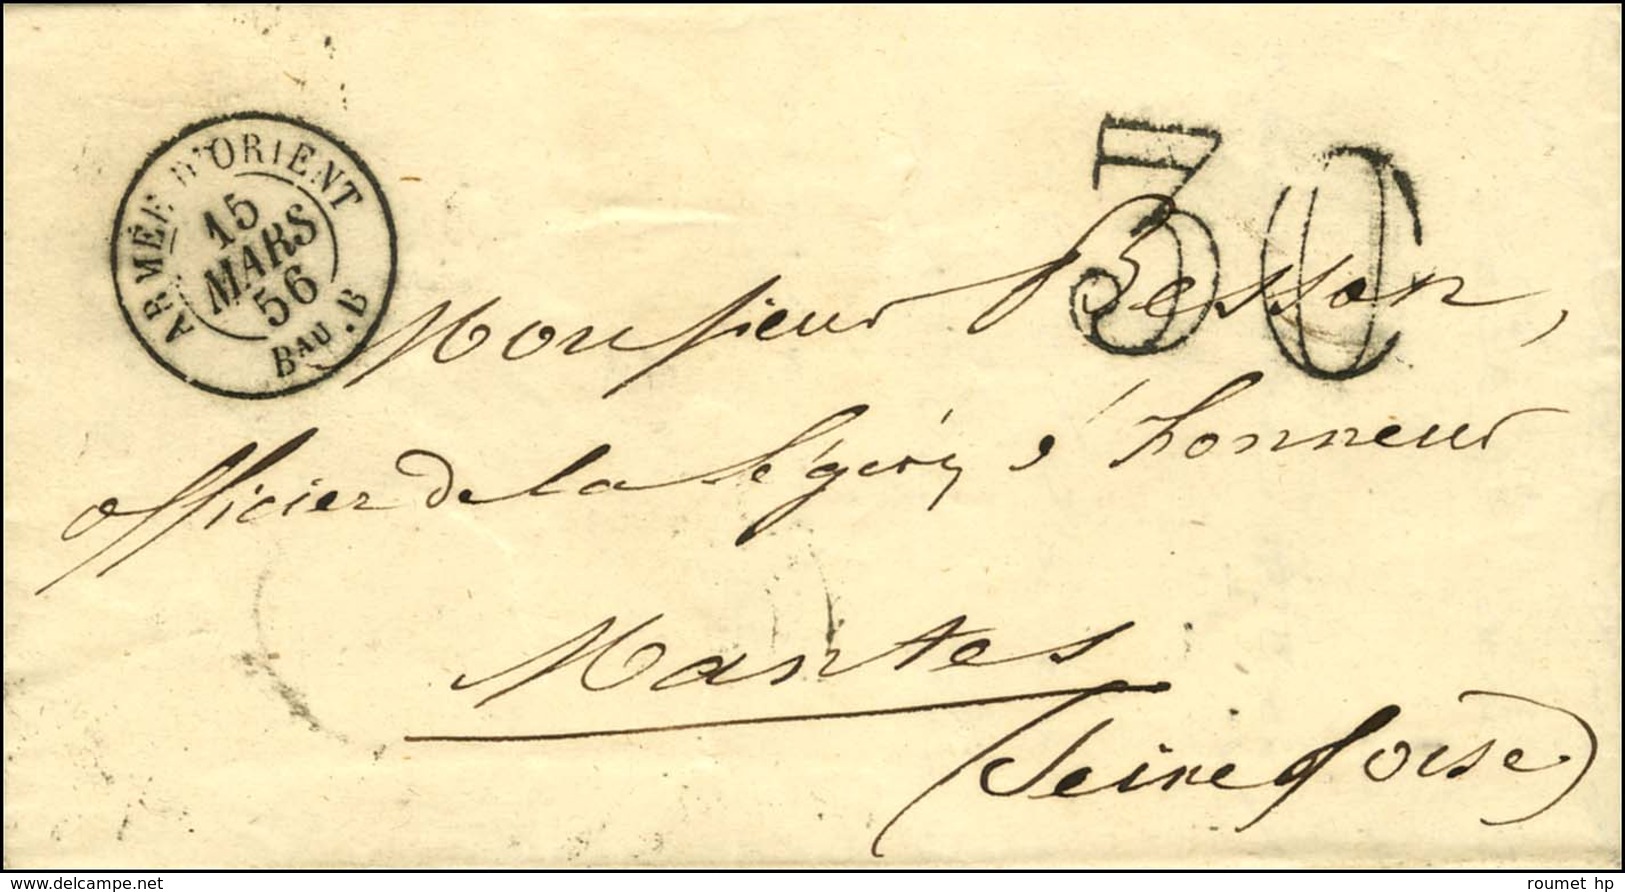 ARMÉE D'ORIENT
15
MARS
56
Bau. B
30
Monsieur Besson,
officier de la Légion d'honneur
Mantes
(Seine & oise)
www.delcampe.net
roumet hp